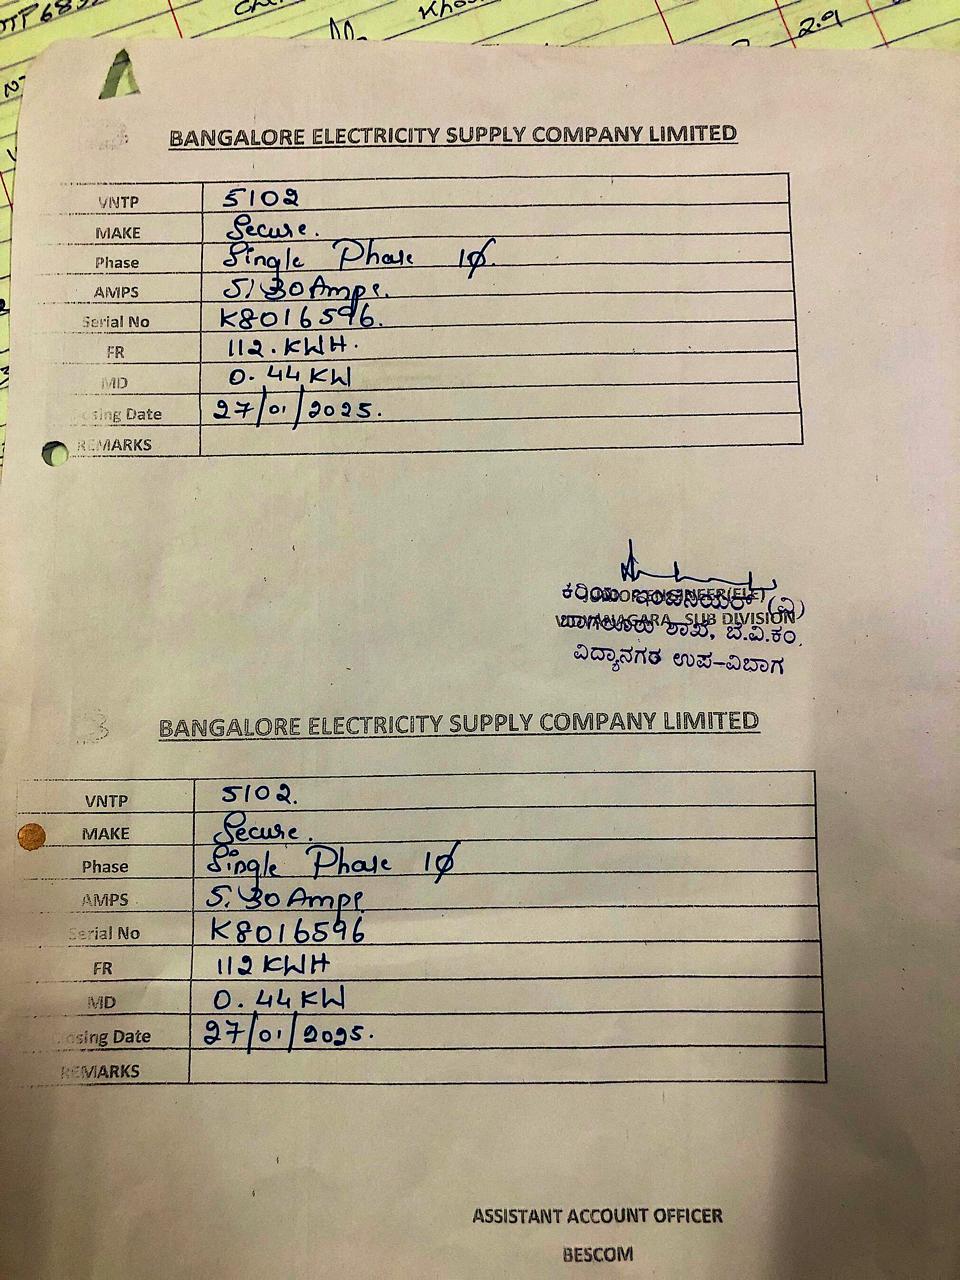 BANGALORE ELECTRICITY SUPPLY COMPANY LIMITED
VNTP 5102
MAKE Secure.
Phase Single Phase 1ϕ.
AMPS 5/30 Amps.
Serial No K8016596.
FR 112. KWH.
MD 0. 44 KW
osing Date 27/01/2025.
REMARKS
ಕಿರಿಯ ಇಂಜಿನಿಯರ್ (ವಿ)
JUNIOR ENGINEER(ELE)
SUB DIVISION
ಬಾಗಲೂರು ಶಾಖೆ, ಬೆ.ವಿ.ಕಂ.
ವಿದ್ಯಾನಗರ ಉಪ-ವಿಭಾಗ
BANGALORE ELECTRICITY SUPPLY COMPANY LIMITED
VNTP 5102.
MAKE Secure.
Phase Single Phase 1ϕ
AMPS 5/30 Amps
Serial No K8016596
FR 112 KWH
MD 0. 44 KW
osing Date 27/01/2025.
REMARKS
ASSISTANT ACCOUNT OFFICER
BESCOM